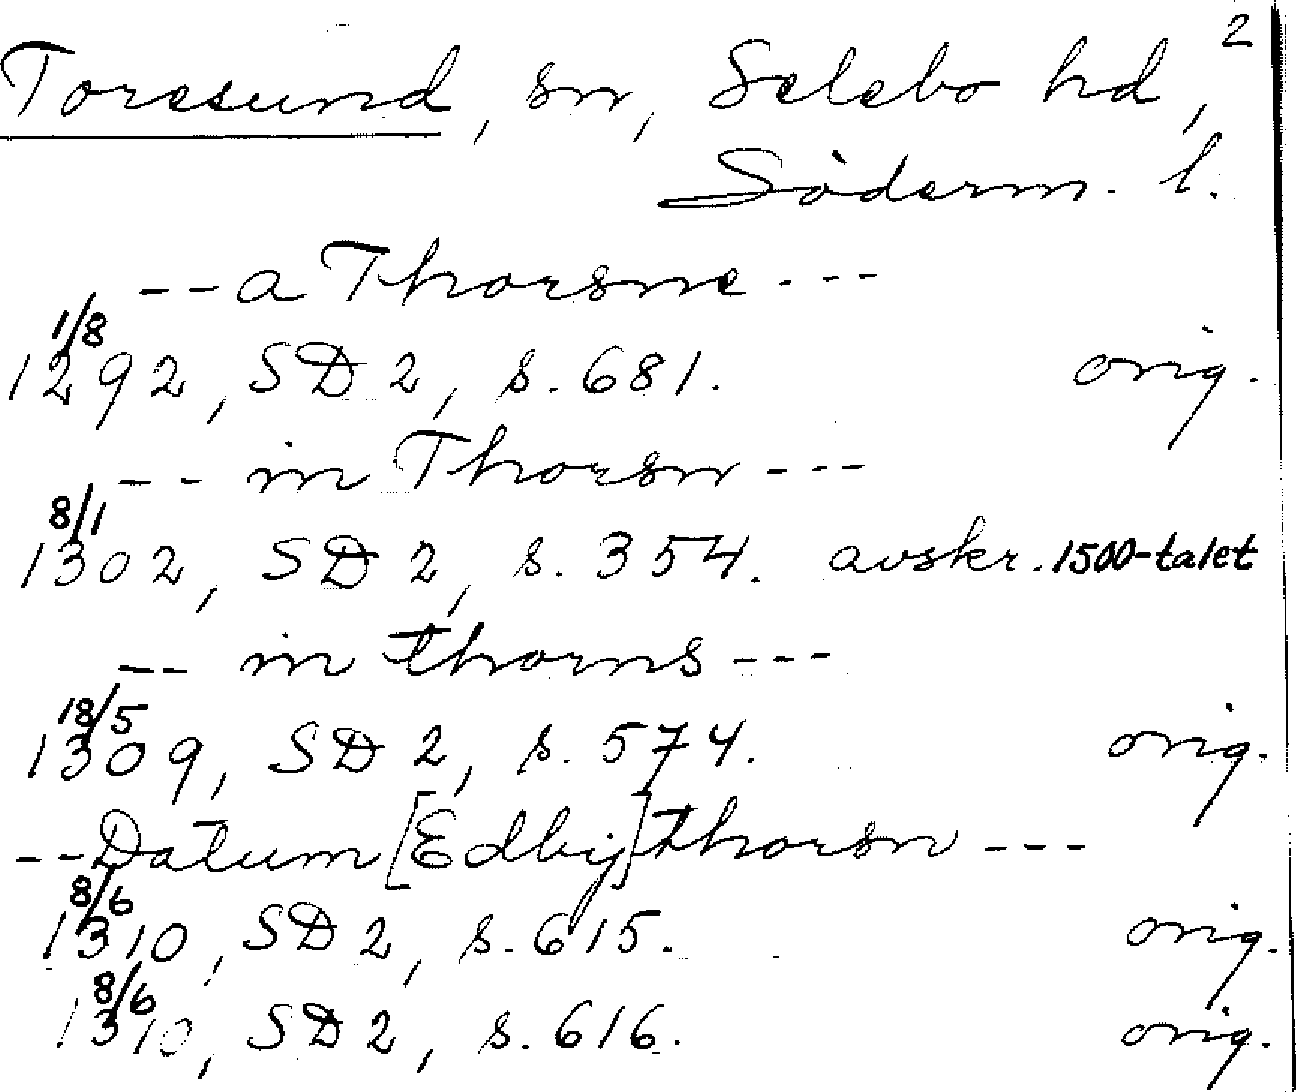 2
Toresund, sn, Selebo hd,
Söderm. l.
--a Thorsne---
1/8
1292, SD 2, s. 681. orig.
-- in Thorsn---
8/1
1302, SD 2, s. 354. avskr. 1500-talet
-- in thorns---
18/5
1309, SD 2, s. 574. orig.
--Datum [Edby] thorsn---
8/6
1310, SD 2, s. 615. orig.
8/6
1310, SD 2, s. 616. orig.